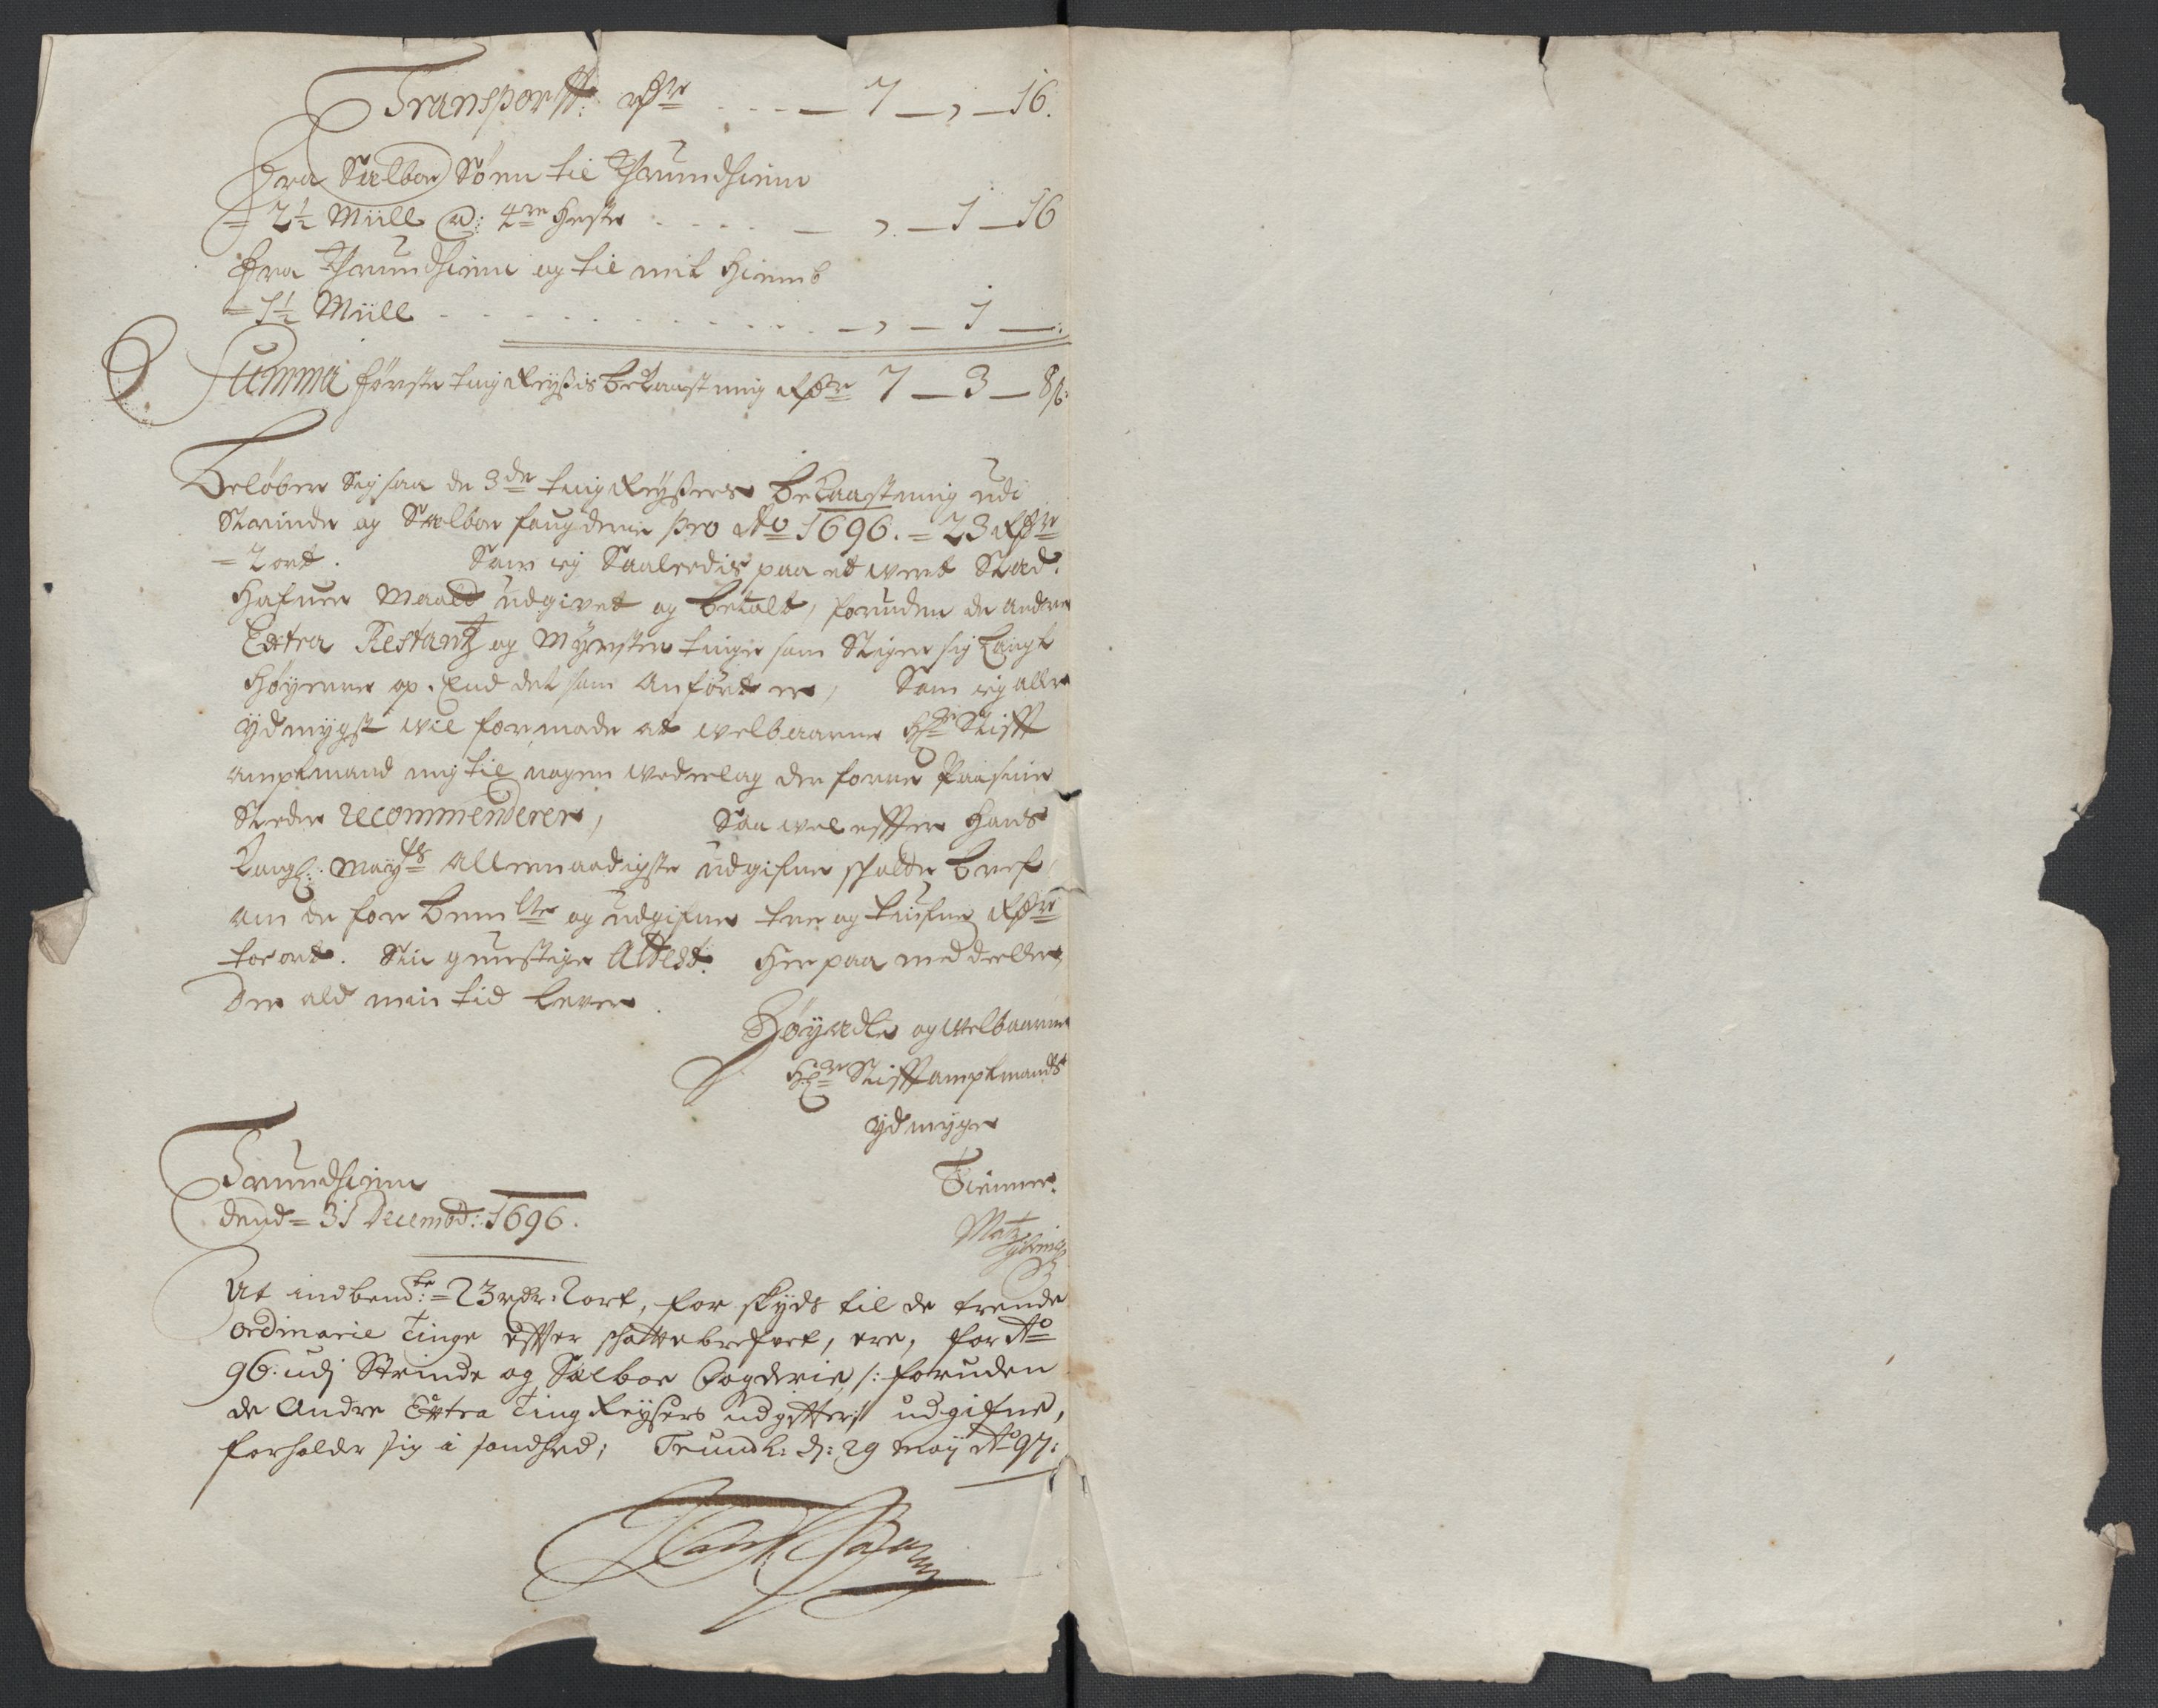 Transport: Rdr - - - 7 — , — 16.
Fra Sælboe Søen til Thrundhiem
= 2½ Miill @: 4re Heste - - - — , — 1 — 16
Fra Thrundhiem og til mit Hiemb
= 1½ Miill - - - - — , — 1 — :
Summa første ting Reyßis bekaastning Rdr 7 — 3 — 8ß:
Beløber sig saa de 3de ting Reyßers bekaastning udi
Strinde og Sælboe faugderie pro Ao 1696. = 23 Rdr
= 2 ort. Som ieg Saaledis paa et wert Stæd.
Hafuer udgivet og betalt, foruden de andre
Extra Restantz og tinge som Stiger sig Langt
Høyere op. End det som Anført er, Som ieg aller
ydmygst wil formode at welbaarne Hr Stifft
amptmand mig til nogen wederlag der forre
Steder recommenderer, Saa wel effter Hans
Kongl: Mayts Allernaadigste udgifne schatte bref,
om de for bemelte og udgifne tree og tiufve Rdr
toe ort. Sin gunstige Attest. Her paa meddeeller,
Der ald min tid lever.
Høyædle og Welbaarne
Hr Stifftamptmands
ydmyge
Tienner.
Trundhiem
dend = 31 Decembr: 1696.
Matz
At indbemte: = 23 rdr. 2 ort, for skyds til de trende
ordinarie Tinge effter schattebrefvet, ere, for Ao
96. udj Strinde og Sælboe Fogderie /: foruden
de Andre Extra Ting Reysers udgifter :/ udgifne,
forholder sig i sandhed; Trundh: d: 29 Maij Ao 97: